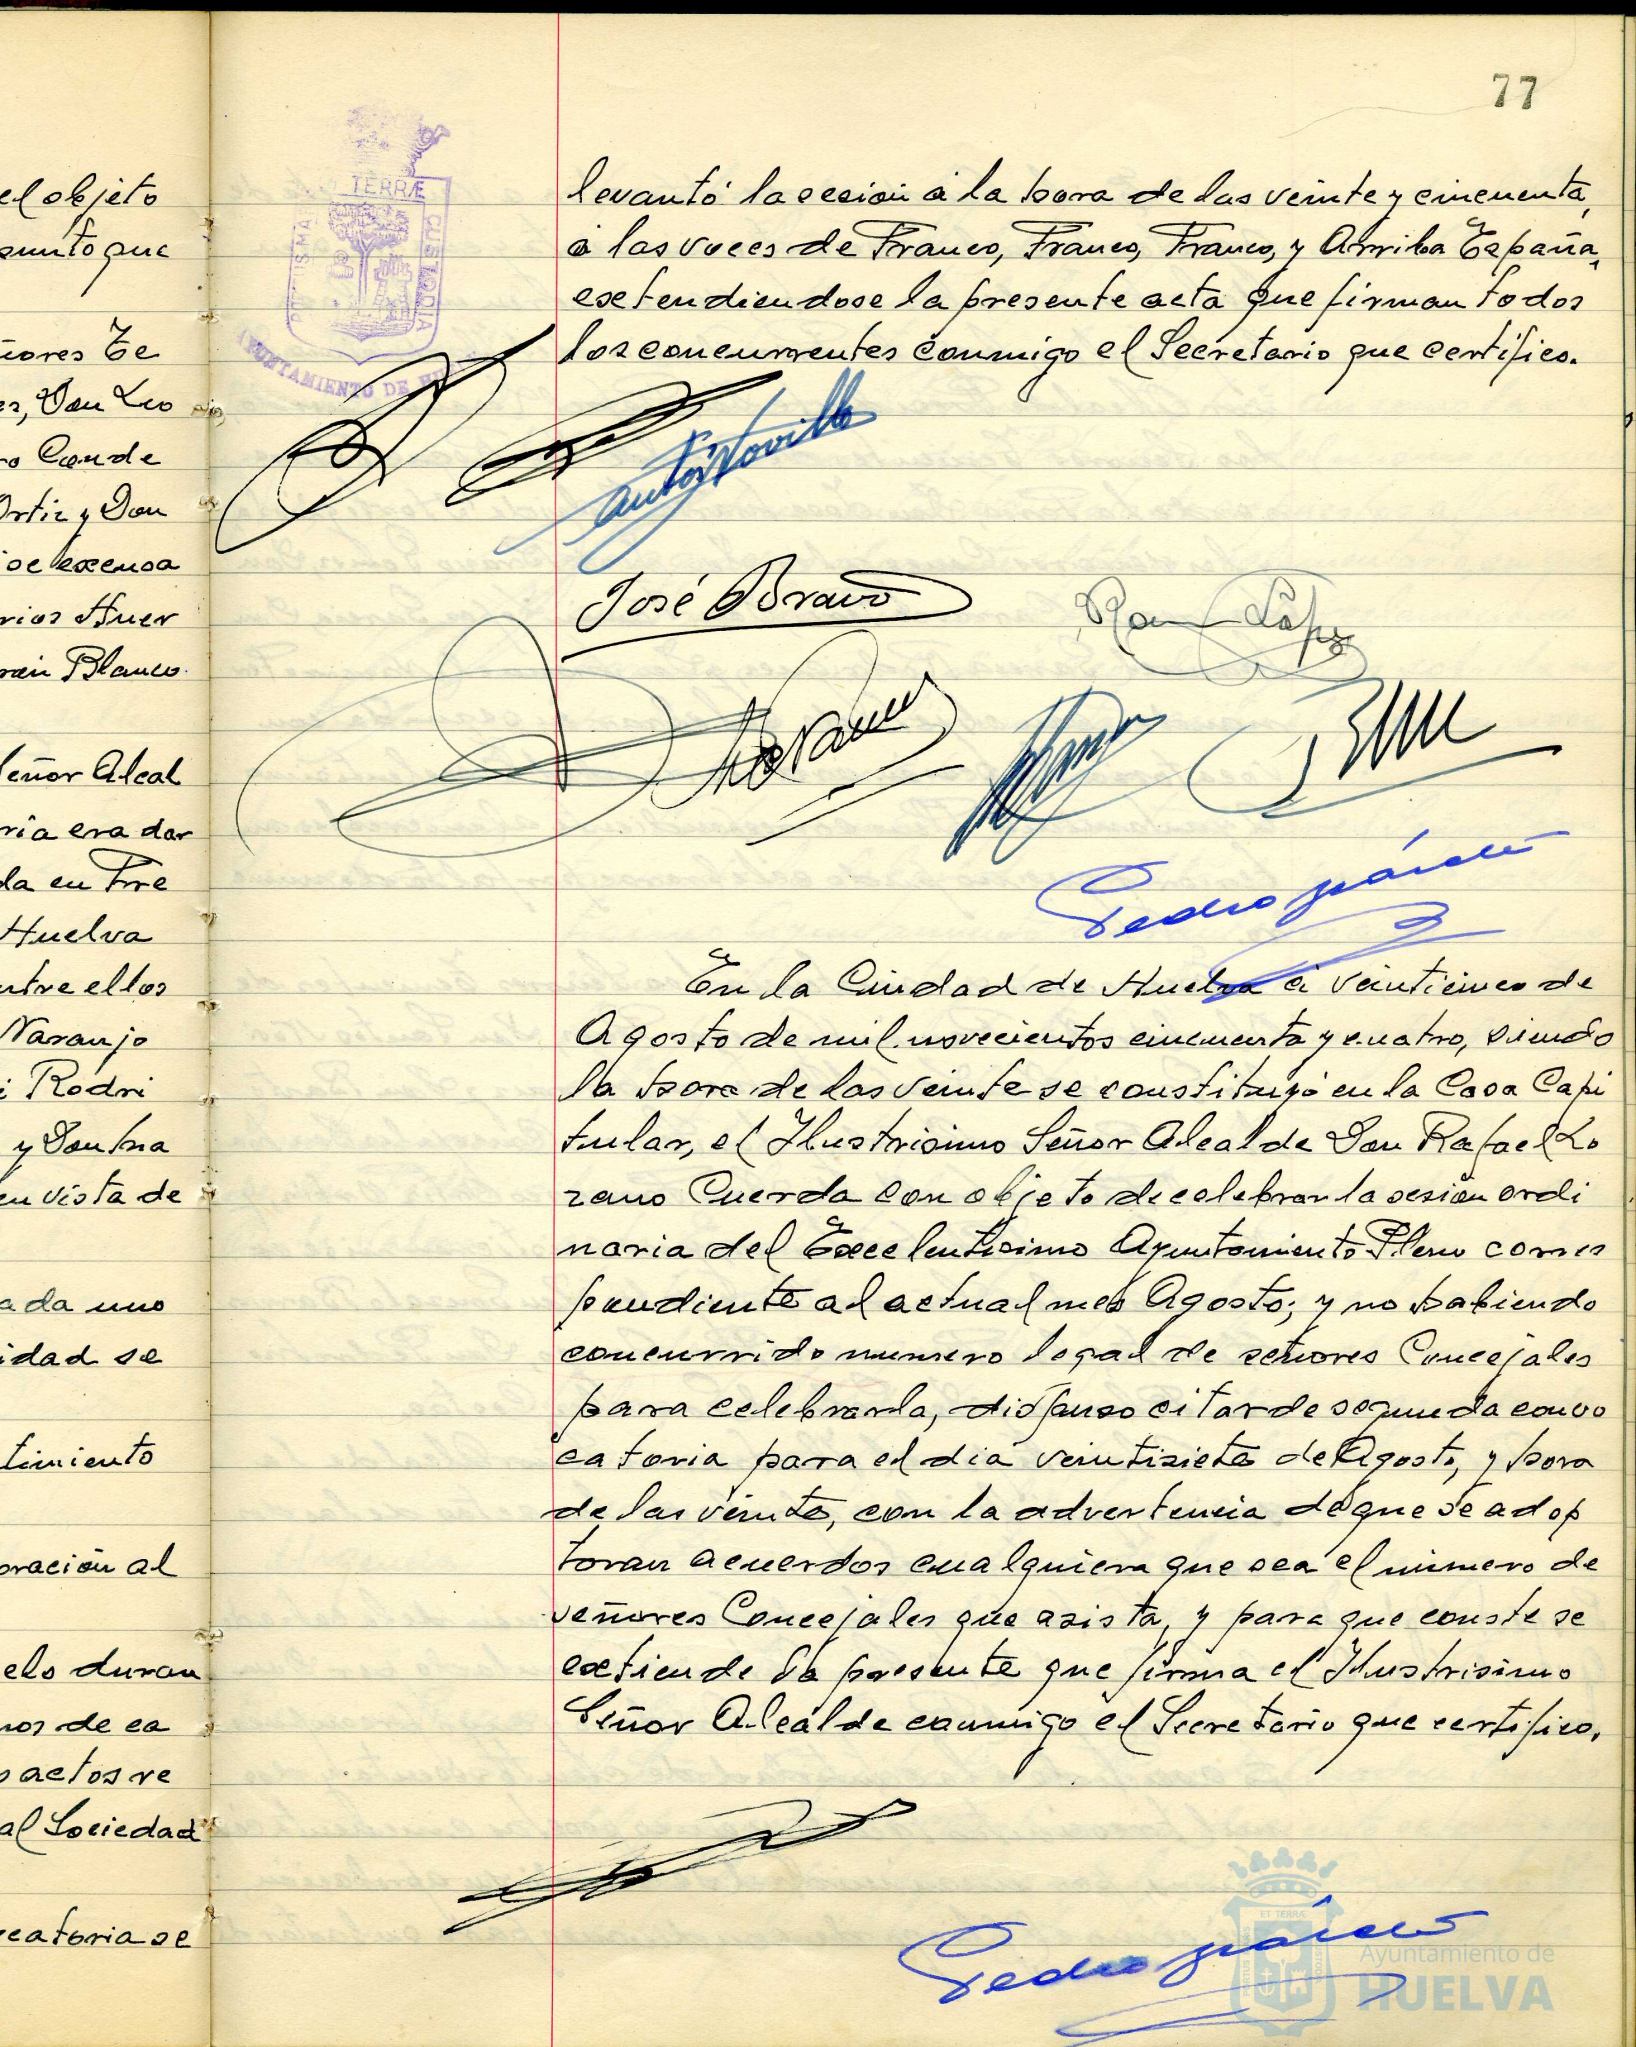 77
el objeto
sunto que
ñores Te
es, Don Leo
ro Conde
Ortiz y Don
se excusa
rios Huer
rán Blanco.
Señor Alcal
ria era dar
da en Fre
Huelva
ntre ellos
Naranjo
i Rodri
y Don Ina
en vista de
ada uno
idad se
timiento
oración al
elo duran
nos de ca
s actos re
al Sociedad
catoria se
TERRÆ
CUSTODIA
AYUNTAMIENTO DE HU
levantó la sesión á la hora de las veinte y cincuenta,
á las voces de Franco, Franco, Franco, y Arriba España,
extendiendose la presente acta que firman todos
los concurrentes conmigo el Secretario que certifico.
José Bravo
En la Ciudad de Huelva á veinticinco de
Agosto de mil novecientos cincuenta y cuatro, siendo
la hora de las veinte se constituyó en la Casa Capi
tular, el Ilustrisimo Señor Alcalde Don Rafael Lo
zano Cuerda con objeto de celebrar la sesión ordi
naria del Excelentisimo Ayuntamiento Pleno corres
pondiente al actual mes Agosto; y no habiendo
concurrido numero legal de señores Concejales
para celebrarla, dispuso citar de segunda convo
catoria para el dia veintisiete de Agosto, y hora
de las veinte, con la advertencia de que se adop
taran acuerdos cualquiera que sea el número de
señores Concejales que asista, y para que conste se
extiende la presente que firma el Ilustrisimo
Señor Alcalde conmigo el Secretario que certifico.
Pedro
ET TERRÆ
Ayuntamiento de
HUELVA